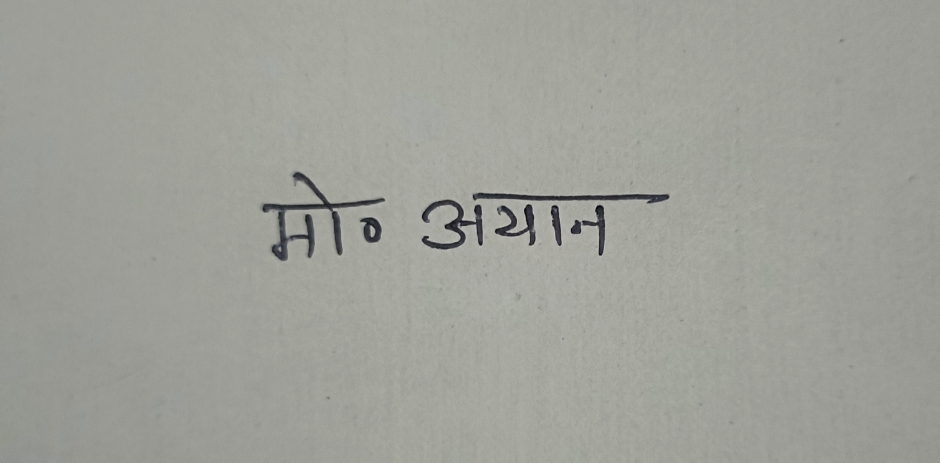 मो० अयान